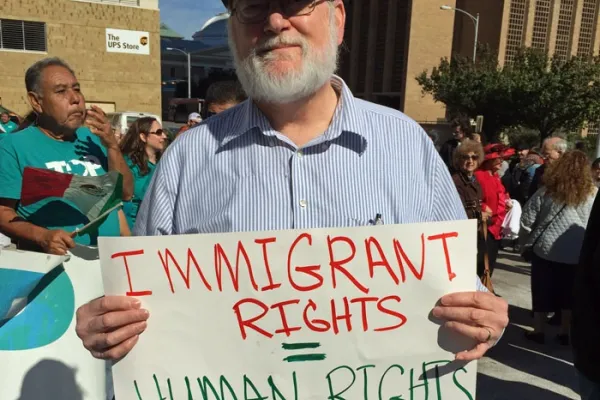 The
UPS Store
IMMIGRANT
RIGHTS
=
HUMAN RIGHTS